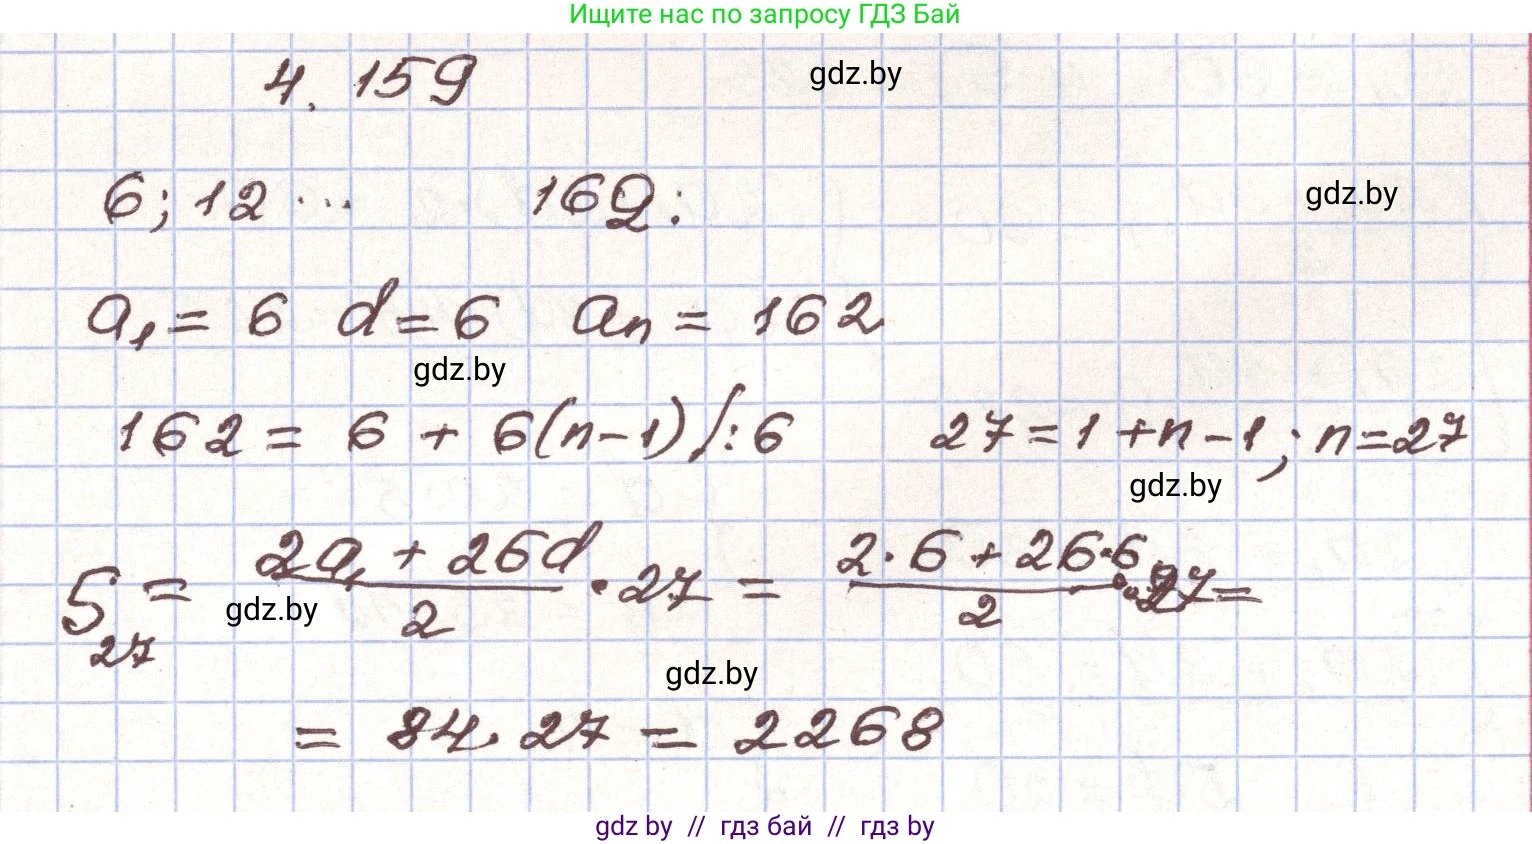 Ищите нас по запросу ГДЗ Бай
4. 159
gdz.by
6; 12 ... 162:
gdz.by
a₁ = 6 d = 6 aₙ = 162
gdz.by
162 = 6 + 6(n-1) /:6 27 = 1 + n - 1; n = 27
gdz.by
S₂₇ = (2a₁ + 26d)/2 · 27 = (2·6 + 26·6)/2 · 27 =
gdz.by
gdz.by
= 84 · 27 = 2268
gdz by // гдз бай // гдз by